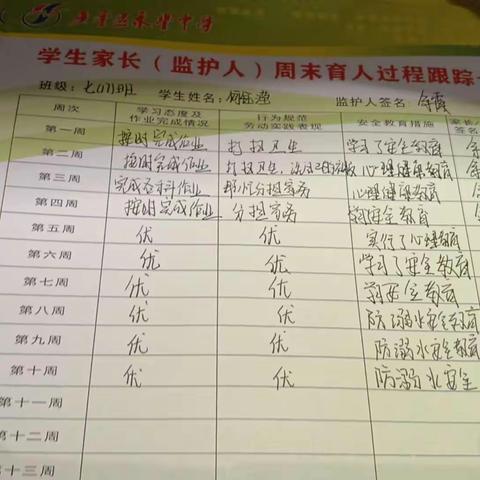 学生家长（监护人）周末育人过程跟踪
班级：七（1）班 学生姓名： 监护人签名：
周次 学习态度及作业完成情况 行为规范劳动实践表现 安全教育措施 家长 签名
第一周 按时完成作业 打扫卫生 学习了安全教育
第二周 按时完成作业 打扫卫生， 心理健康教育
第三周 完成各科作业 帮忙分担家务 心理健康教育
第四周 按时完成作业 分担家务 安全教育
第五周 优 优 实行了心理教育
第六周 优 优 学习了安全教育
第七周 优 优 安全教育
第八周 优 优 防溺水安全教育
第九周 优 优 防溺水安全教育
第十周 优 优 防溺水安全
第十一周
第十二周
第十三周